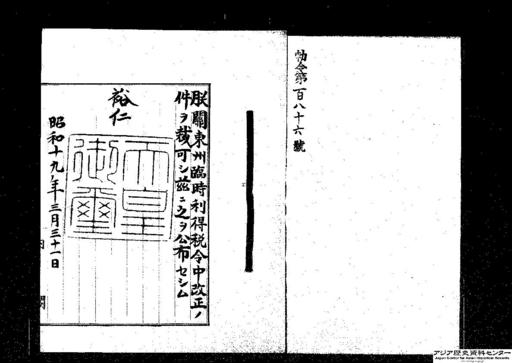 勅令第百八十六號
朕關東州臨時利得税令中改正ノ
件ヲ裁可シ茲ニ之ヲ公布セシム
裕仁
天皇
御璽
昭和十九年三月三十一日
内閣
アジア歴史資料センター
Japan Center for Asian Historical Records